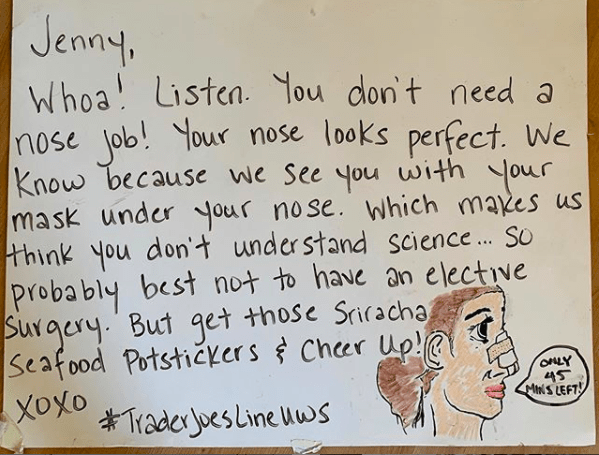 Jenny,
Whoa! Listen. You don't need a
nose job! Your nose looks perfect. We
Know because we see you with your
mask under your nose. Which makes us
think you don't understand science... So
probably best not to have an elective
Surgery. But get those Sriracha
Seafood Potstickers & Cheer Up!
XOXO
#TraderJoesLineUWS
ONLY
45
MINS LEFT!